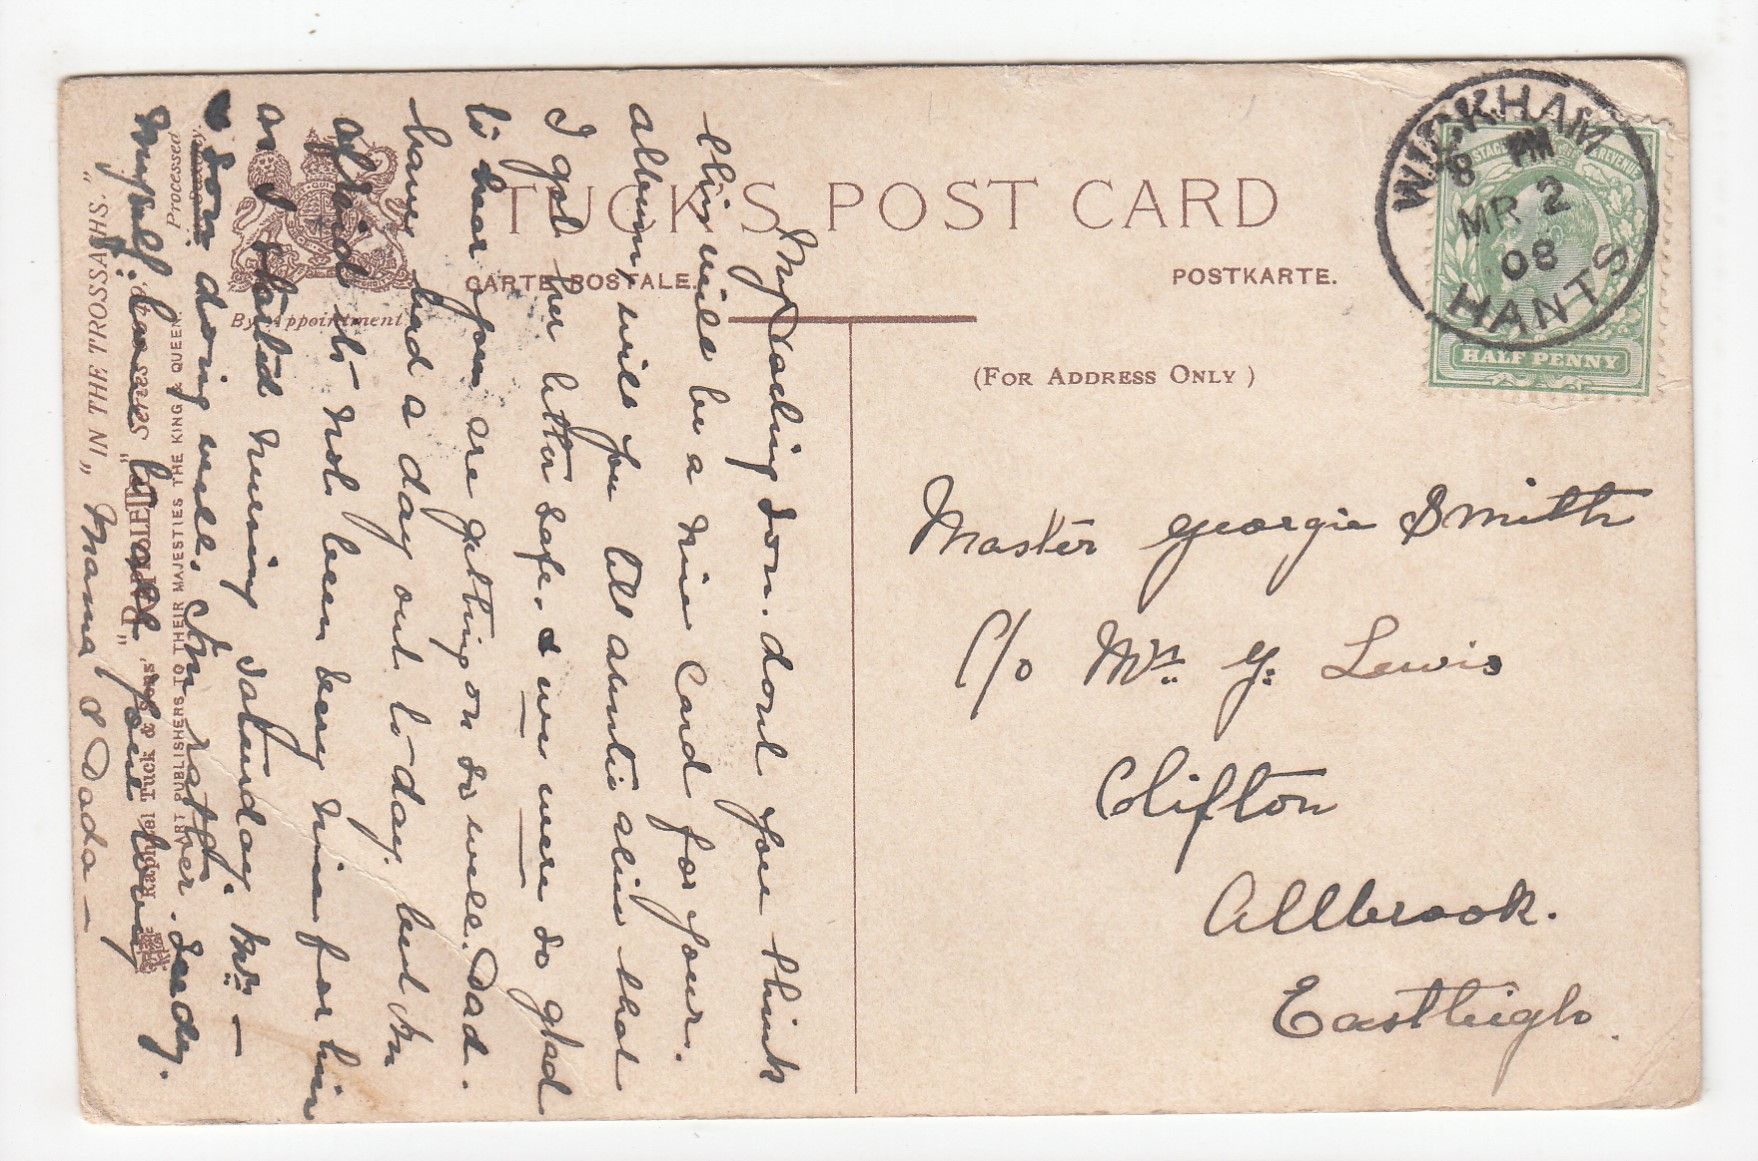 TUCK'S POST CARD
CARTE POSTALE.
POSTKARTE.
(FOR ADDRESS ONLY)
By Appointment
WICKHAM
8 PM
MR 2
08
HANTS
HALF PENNY
Master Georgie Smith
C/o Mrs G. Lewis
Clifton
Allbrook.
Eastleigh.
My Darling Son. dont you think
this will be a nice Card for your
album, will you tell auntie alice that
I got her letter safe. & we were so glad
to hear you are getting on so well. Dad.
have had a day out to-day, but Im
afraid its not been very nice for him
as I started Saturday. Mrs –
& Son doing well. Im rather Seedy.
myself. love to all your loving
Mama & Dada –
Processed
Raphael Tuck & Sons' "OILETTE"
ART PUBLISHERS TO THEIR MAJESTIES THE KING & QUEEN.
„ IN THE TROSSACHS."